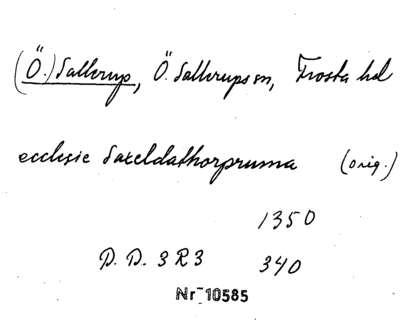 (Ö.) Sallerup, Ö. Sallerups sn, Frosta hd
ecclesie Saxeldathorpruma (orig.)
1350
D. D. 3 R 3 340
Nr 10585